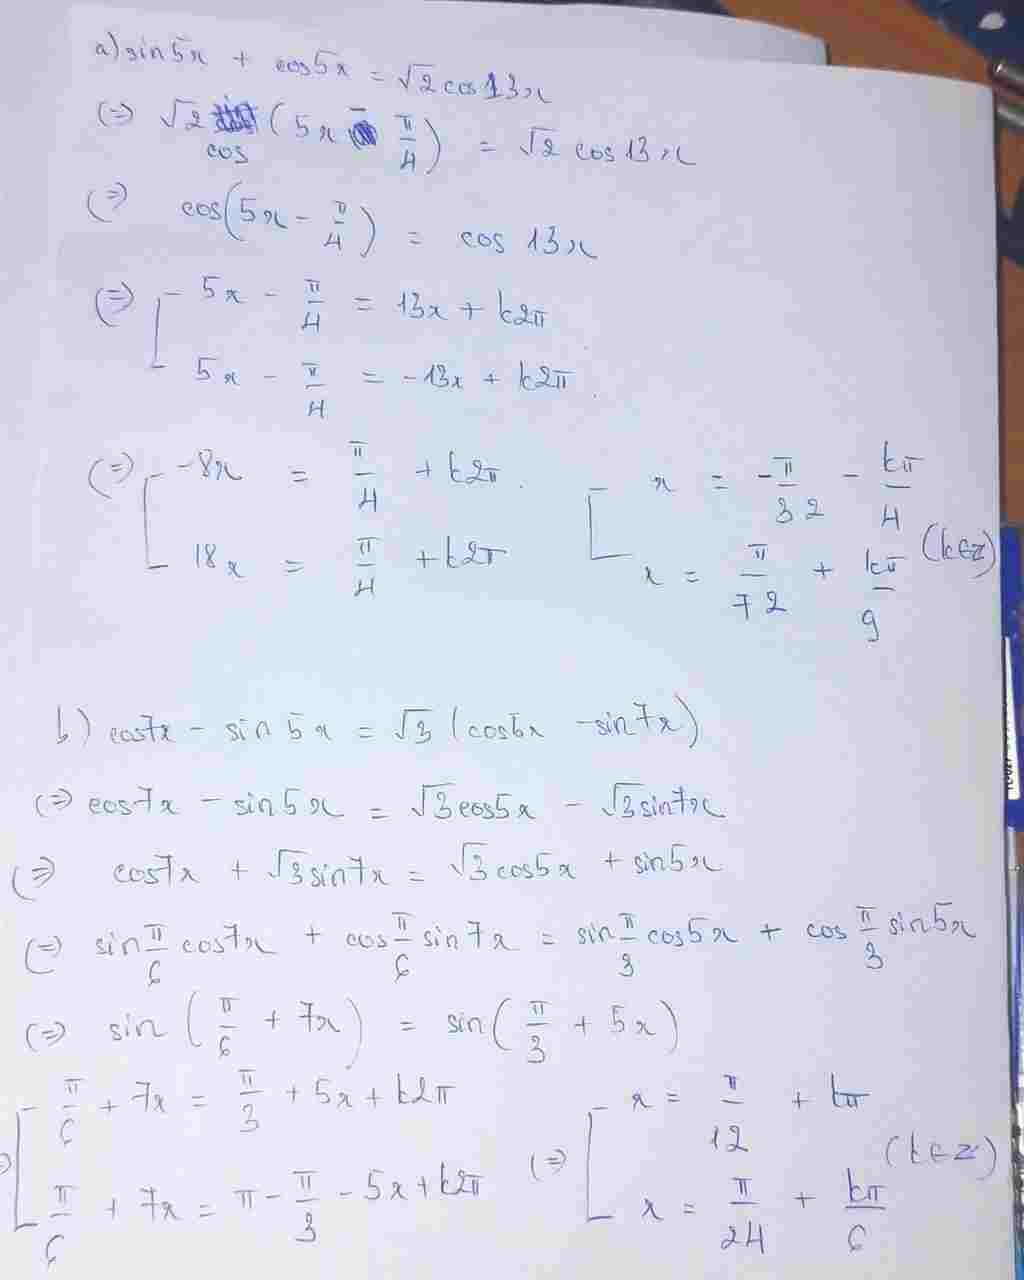 a) sin5x + cos5x = √2 cos13x
(=) √2 cos (5x - π/4) = √2 cos 13x
(=) cos(5x - π/4) = cos 13x
(=) [ 5x - π/4 = 13x + k2π
5x - π/4 = -13x + k2π
(=) [ -8x = π/4 + k2π [ x = -π/32 - kπ/4
18x = π/4 + k2π x = π/72 + kπ/9 (k∈Z)
b) cos7x - sin 5x = √3 (cos5x - sin7x)
(=) cos7x - sin5x = √3cos5x - √3sin7x
(=) cos7x + √3sin7x = √3cos5x + sin5x
(=) sin π/6 cos7x + cos π/6 sin7x = sin π/3 cos5x + cos π/3 sin5x
(=) sin (π/6 + 7x) = sin(π/3 + 5x)
[ π/6 + 7x = π/3 + 5x + k2π (=) [ x = π/12 + kπ
π/6 + 7x = π - π/3 - 5x + k2π x = π/24 + kπ/6 (k∈Z)